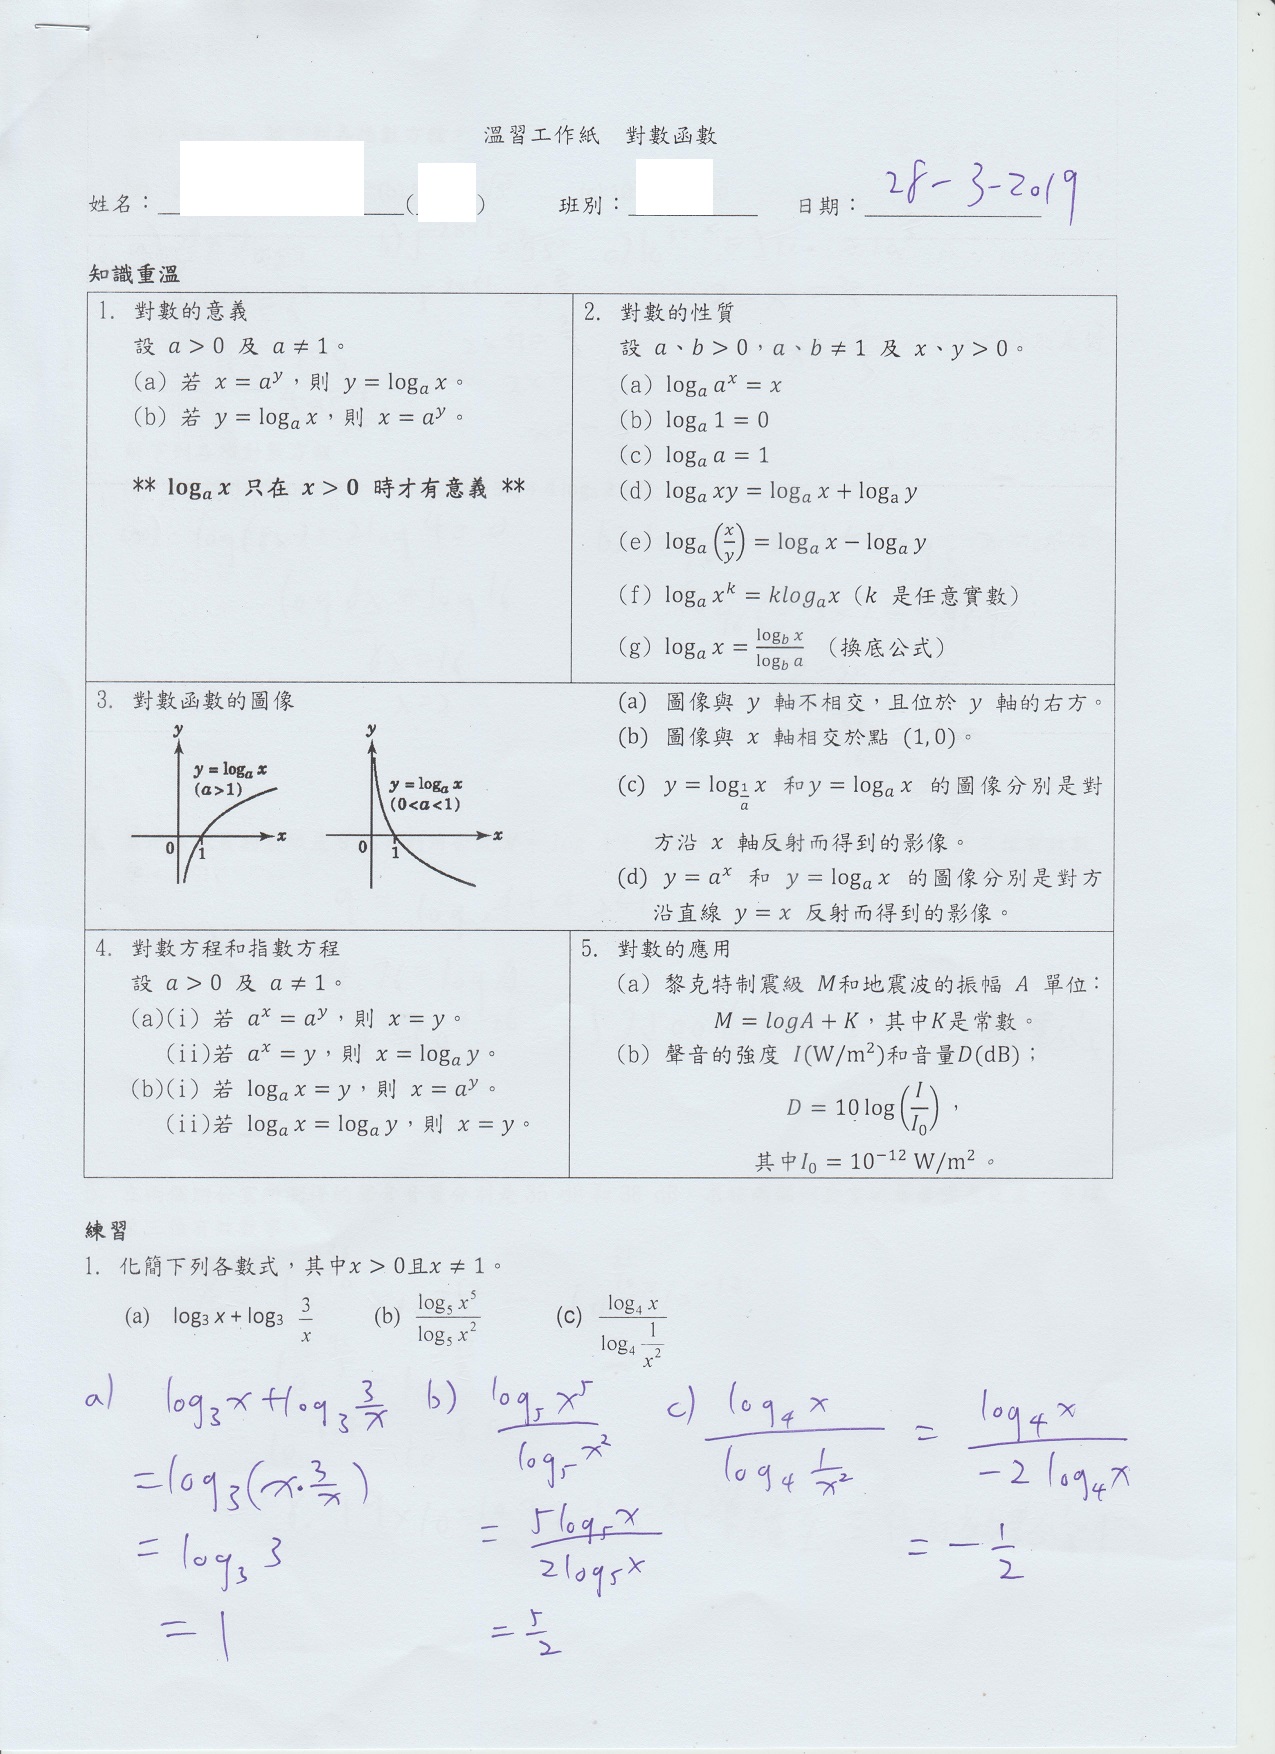 溫習工作紙 對數函數
姓名：( ) 班別： 日期：28-3-2019
知識重溫
1. 對數的意義
設 a > 0 及 a ≠ 1。
(a) 若 x = a^y，則 y = log_a x。
(b) 若 y = log_a x，則 x = a^y。
** log_a x 只在 x > 0 時才有意義 **
2. 對數的性質
設 a、b > 0，a、b ≠ 1 及 x、y > 0。
(a) log_a a^x = x
(b) log_a 1 = 0
(c) log_a a = 1
(d) log_a xy = log_a x + log_a y
(e) log_a (x/y) = log_a x − log_a y
(f) log_a x^k = klog_a x (k 是任意實數)
(g) log_a x = log_b x / log_b a （換底公式）
3. 對數函數的圖像
y
y = log_a x
(a>1)
0 1 x
y
y = log_a x
(0<a<1)
0 1 x
(a) 圖像與 y 軸不相交，且位於 y 軸的右方。
(b) 圖像與 x 軸相交於點 (1, 0)。
(c) y = log_(1/a) x 和 y = log_a x 的圖像分別是對
方沿 x 軸反射而得到的影像。
(d) y = a^x 和 y = log_a x 的圖像分別是對方
沿直線 y = x 反射而得到的影像。
4. 對數方程和指數方程
設 a > 0 及 a ≠ 1。
(a)(i) 若 a^x = a^y，則 x = y。
(ii)若 a^x = y，則 x = log_a y。
(b)(i) 若 log_a x = y，則 x = a^y。
(ii)若 log_a x = log_a y，則 x = y。
5. 對數的應用
(a) 黎克特制震級 M和地震波的振幅 A 單位：
M = logA + K，其中K是常數。
(b) 聲音的強度 I(W/m²)和音量D(dB)；
D = 10 log(I/I₀)，
其中I₀ = 10⁻¹² W/m² 。
練習
1. 化簡下列各數式，其中x > 0且x ≠ 1。
(a) log₃ x + log₃ 3/x (b) log₅ x⁵ / log₅ x² (c) log₄ x / log₄ 1/x²
a) log₃x + log₃ 3/x
= log₃(x · 3/x)
= log₃ 3
= 1
b) log₅ x⁵ / log₅ x²
= 5log₅ x / 2log₅ x
= 5/2
c) log₄ x / log₄ 1/x² = log₄ x / −2 log₄ x
= −1/2